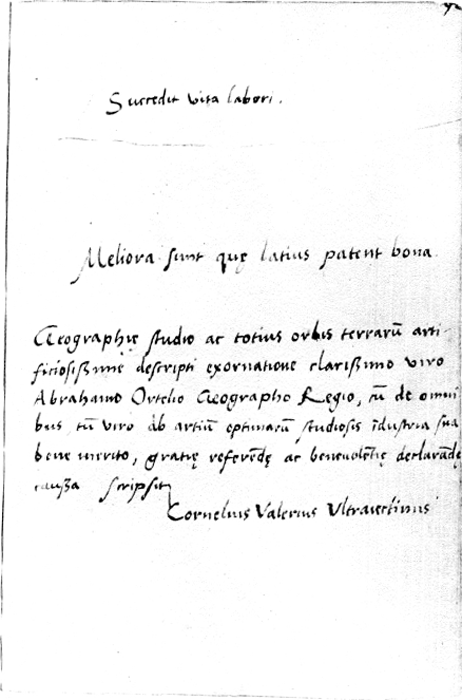 Succedit vita labori.
Meliora sunt quę latius patent bona.
Geographię studio ac totius orbis terrarū arti-
ficiosissimę descripti exornatione clarissimo viro
Abrahamo Ortelio Geographo Regio, cū de omni
bus, tū viro ab artiū optimarū studiosis īdustria sua
bene merito, gratię referēdę ac benevolētię declarādę
caussa scripsit
Cornelius Valerius Ultraiectinus